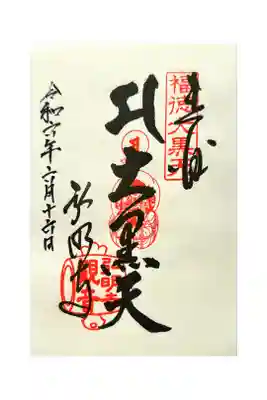 奉拝
福徳大黒天
大黒天
弘明寺
令和六年六月十六日